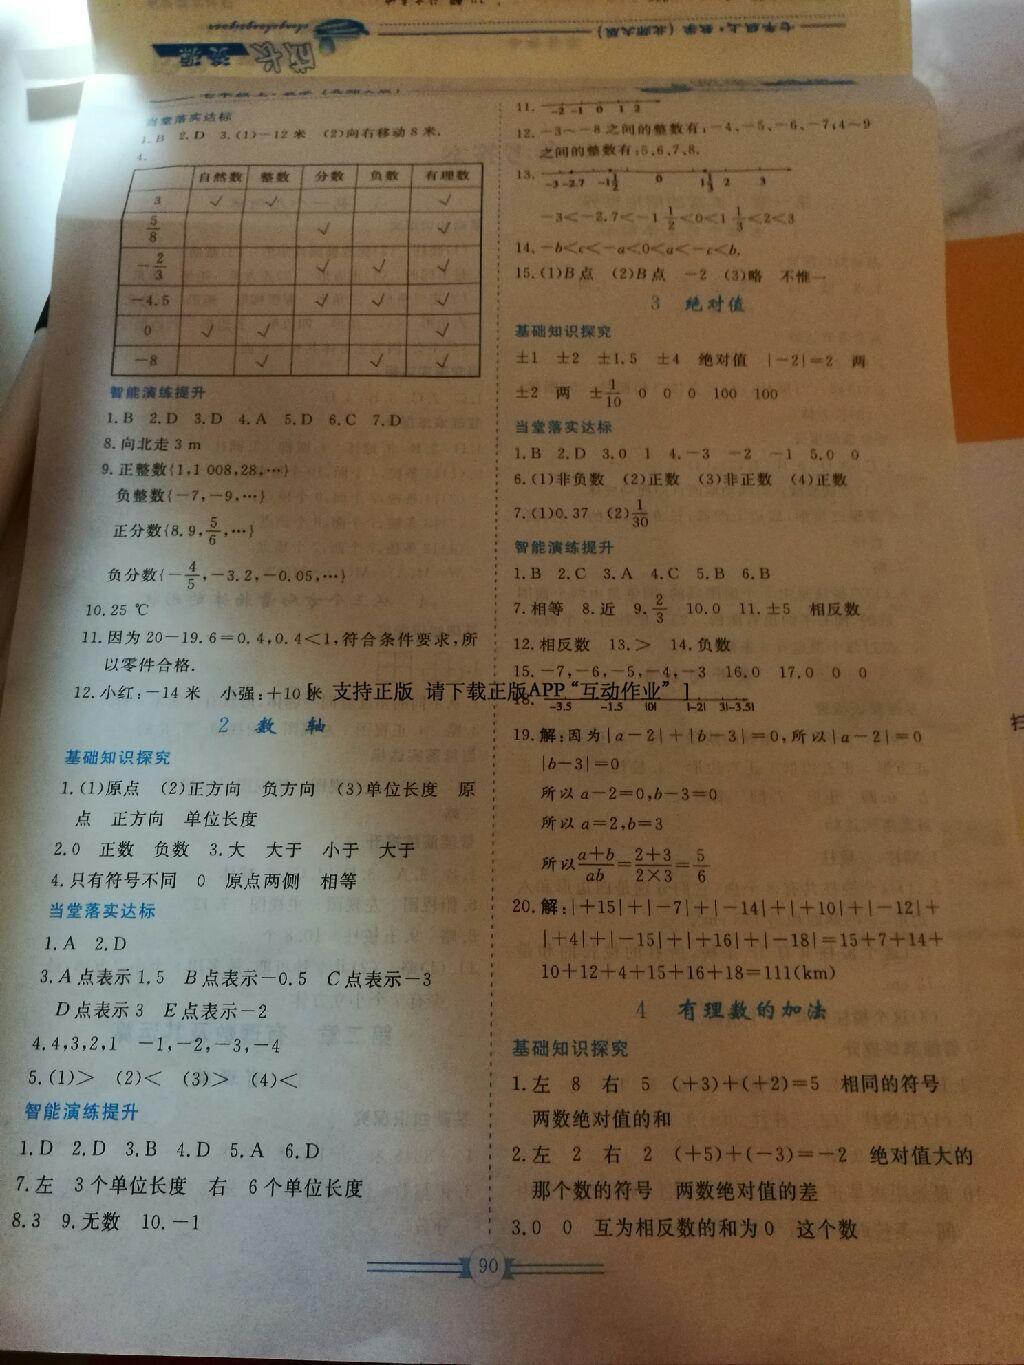 七年级上·数学(北师大版)
成长资源
当堂落实达标
1.B 2.D 3.(1)-12 米 (2)向右移动 8 米.
4.
自然数 整数 分数 负数 有理数
3 ✓ ✓ ✓
5/8 ✓ ✓
-2/3 ✓ ✓ ✓
-4.5 ✓ ✓ ✓
0 ✓ ✓ ✓
-8 ✓ ✓ ✓
智能演练提升
1.B 2.D 3.D 4.A 5.D 6.C 7.D
8.向北走 3 m
9.正整数{1,1 008,28,…}
负整数{-7,-9,…}
正分数{8.9,5/6,…}
负分数{-4/5,-3.2,-0.05,…}
10.25 ℃
11.因为 20-19.6=0.4,0.4<1,符合条件要求,所
以零件合格.
12.小红:-14 米 小强:+10 米
2 数 轴
基础知识探究
1.(1)原点 (2)正方向 负方向 (3)单位长度 原
点 正方向 单位长度
2.0 正数 负数 3.大 大于 小于 大于
4.只有符号不同 0 原点两侧 相等
当堂落实达标
1.A 2.D
3.A 点表示 1.5 B 点表示-0.5 C 点表示-3
D 点表示 3 E 点表示-2
4.4,3,2,1 -1,-2,-3,-4
5.(1)> (2)< (3)> (4)<
智能演练提升
1.D 2.D 3.B 4.D 5.A 6.D
7.左 3 个单位长度 右 6 个单位长度
8.3 9.无数 10.-1
11. -2 -1 0 1 2
12.-3~-8 之间的整数有:-4、-5、-6、-7;4~9
之间的整数有:5,6,7,8.
13. -3 -2.7 -1 1/2 0 1 1/3 2 3
-3<-2.7<-1 1/2<0<1 1/3<2<3
14.-b<c<-a<0<a<-c<b.
15.(1)B 点 (2)B 点 -2 (3)略 不惟一
3 绝对值
基础知识探究
±1 ±2 ±1.5 ±4 绝对值 |-2|=2 两
±2 两 ±1/10 0 0 0 100 100
当堂落实达标
1.B 2.D 3.0 1 4.-3 -2 -1 5.0 0
6.(1)非负数 (2)正数 (3)非正数 (4)正数
7.(1)0.37 (2)1/30
智能演练提升
1.B 2.C 3.A 4.C 5.B 6.B
7.相等 8.近 9.2/3 10.0 11.±5 相反数
12.相反数 13.> 14.负数
15.-7,-6,-5,-4,-3 16.0 17.0 0 0
[ 支持正版 请下载正版APP“互动作业” ]
18. -3.5 -1.5 |0| |-2| 3 |-3.5|
19.解:因为|a-2|+|b-3|=0,所以|a-2|=0
|b-3|=0
所以 a-2=0,b-3=0
所以 a=2,b=3
所以(a+b)/ab=(2+3)/(2×3)=5/6
20.解:|+15|+|-7|+|-14|+|+10|+|-12|+
|+4|+|-15|+|+16|+|-18|=15+7+14+
10+12+4+15+16+18=111(km)
4 有理数的加法
基础知识探究
1.左 8 右 5 (+3)+(+2)=5 相同的符号
两数绝对值的和
2.左 2 右 2 (+5)+(-3)=-2 绝对值大的
那个数的符号 两数绝对值的差
3.0 0 互为相反数的和为 0 这个数
90
扫